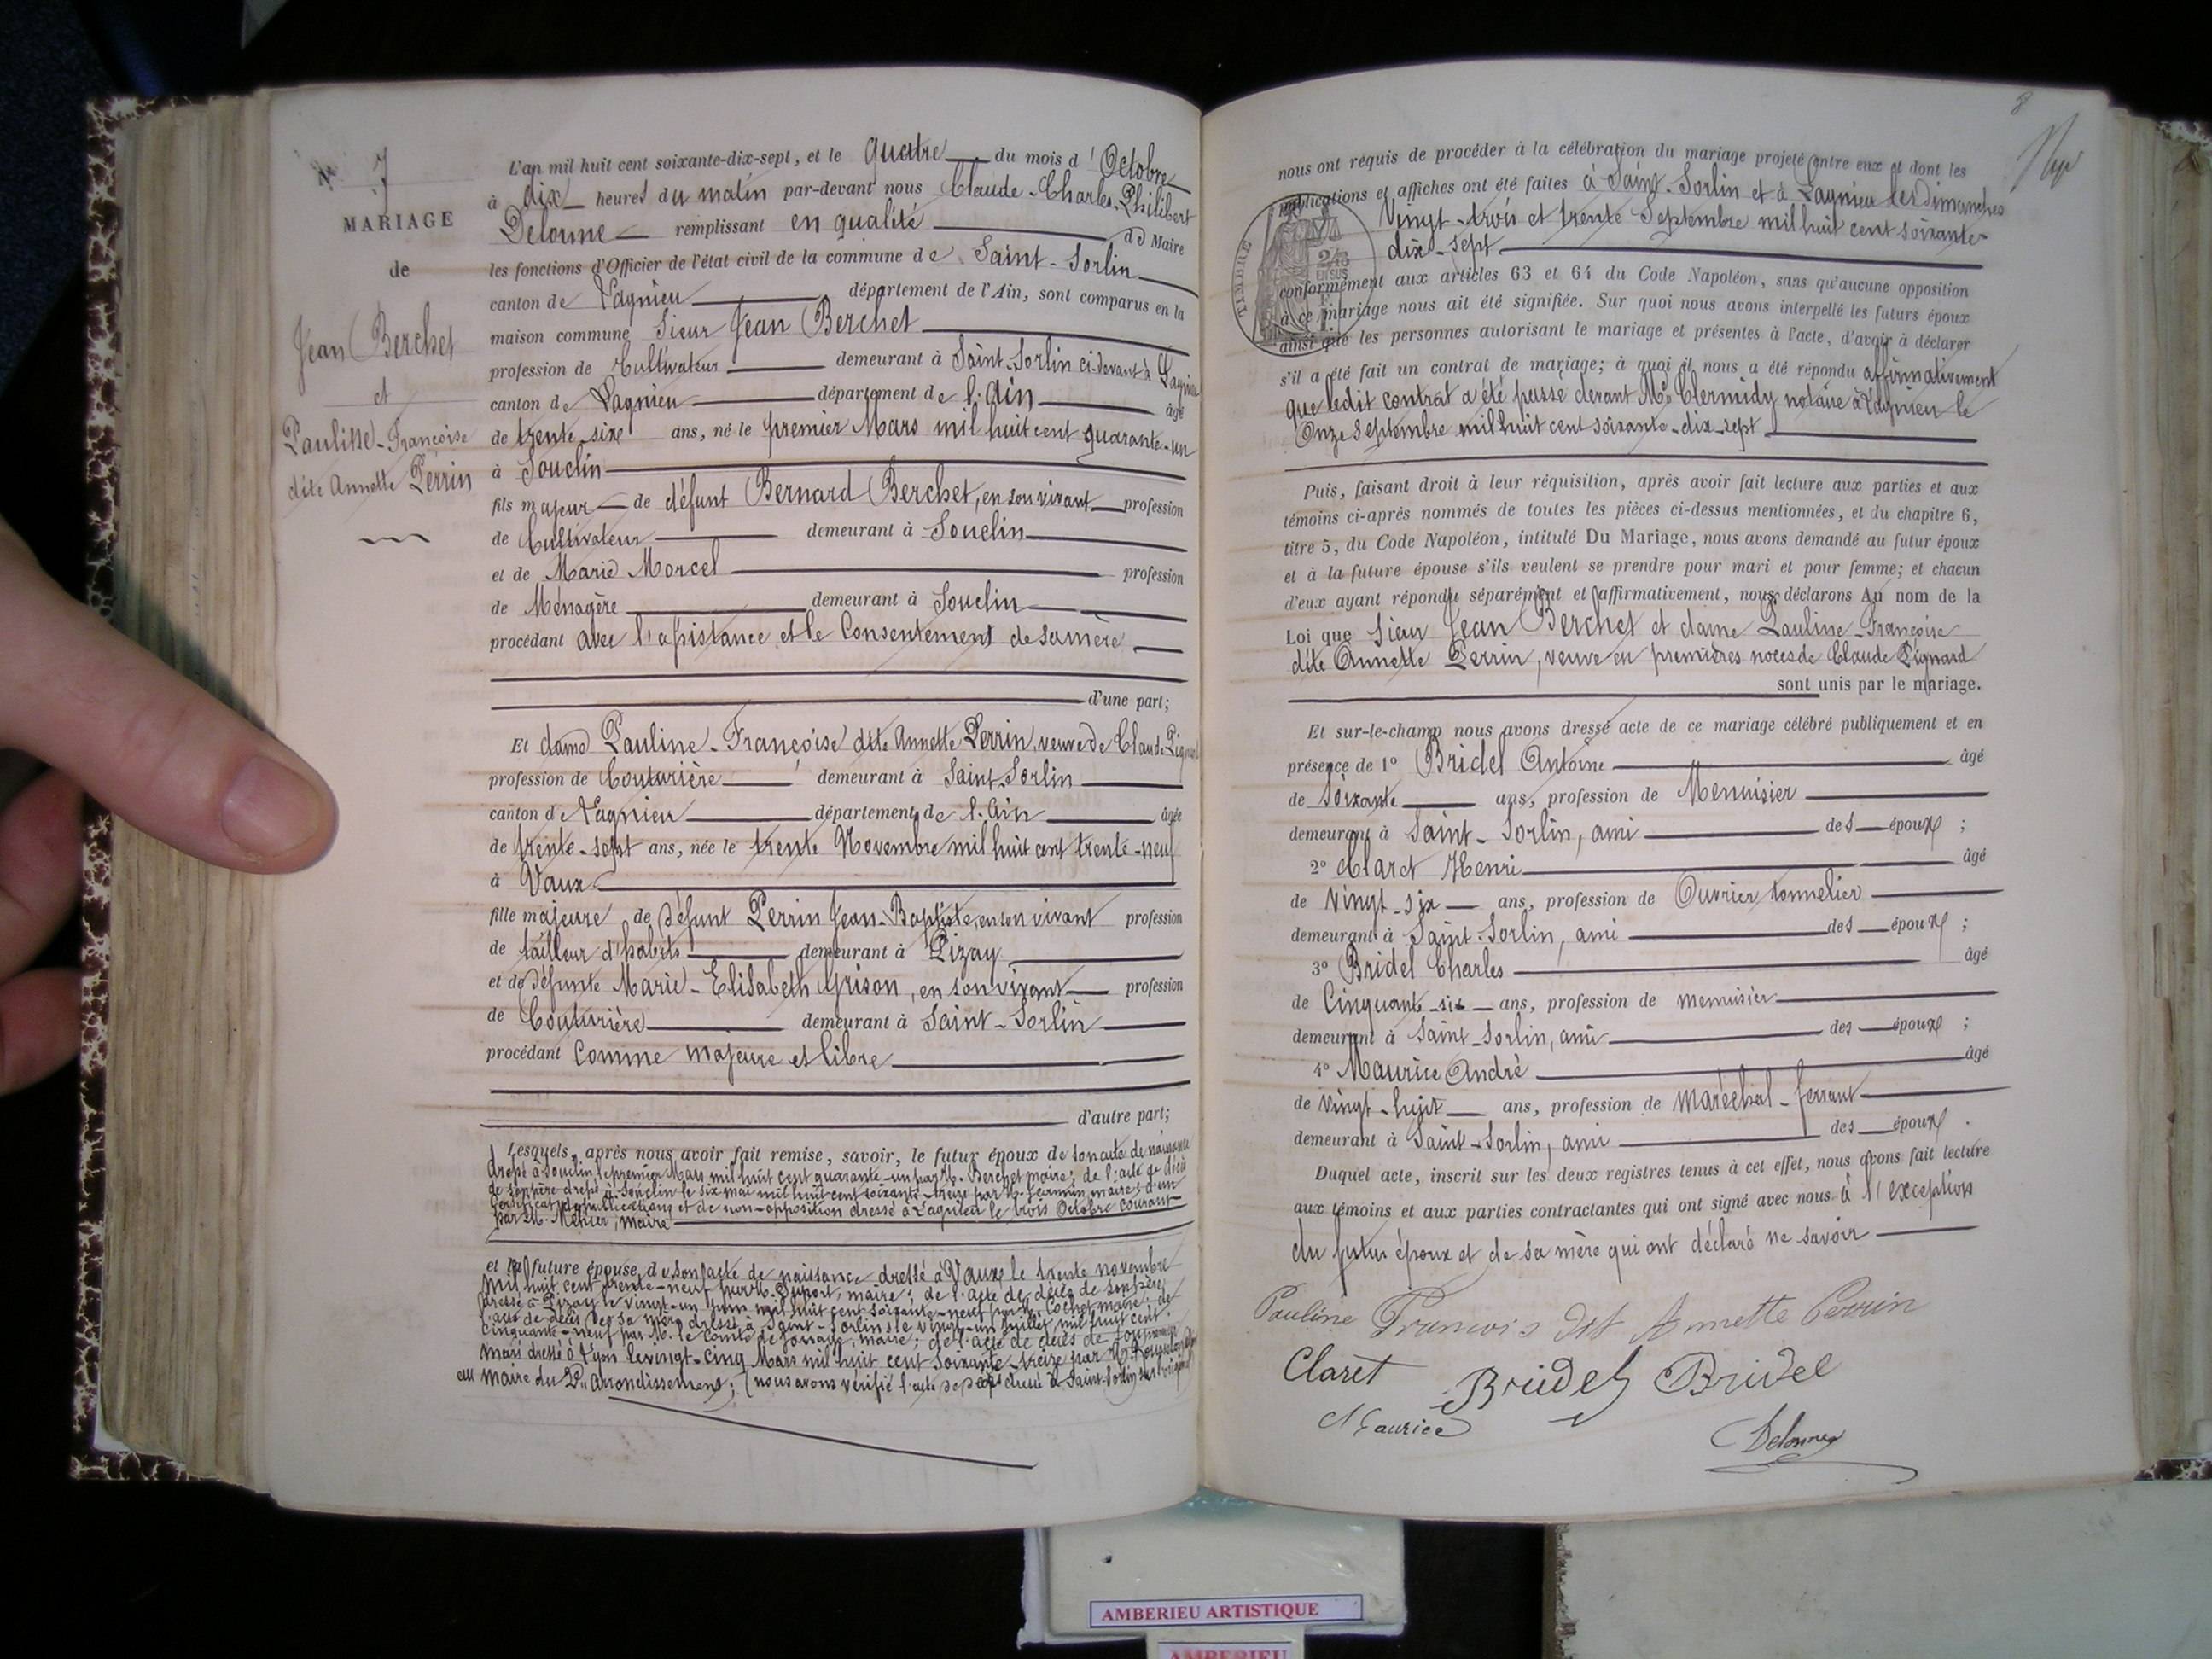 N° 7
MARIAGE
de
Jean Berchet
et
Pauline-Françoise
dite Annette Perrin
L'an mil huit cent soixante-dix-sept, et le quatre du mois d'Octobre
à dix heures du matin par-devant nous Claude-Charles-Philibert
Delorme remplissant en qualité de Maire
les fonctions d'Officier de l'état civil de la commune de Saint-Sorlin
canton de Lagnieu département de l'Ain, sont comparus en la
maison commune Sieur Jean Berchet
profession de Cultivateur demeurant à Saint-Sorlin ci-devant à Lagnieu
canton de Lagnieu département de l'Ain âgé
de trente-six ans, né le premier Mars mil huit cent quarante-un
à Souclin
fils majeur de défunt Bernard Berchet, en son vivant profession
de Cultivateur demeurant à Souclin
et de Marie Morcel profession
de Ménagère demeurant à Souclin
procédant avec l'assistance et le Consentement de sa mère
d'une part;
Et dame Pauline-Françoise dite Annette Perrin, veuve de Claude
profession de Couturière demeurant à Saint-Sorlin
canton de Lagnieu département de l'Ain âgée
de trente-sept ans, née le trente Novembre mil huit cent trente-neuf
à Vaux
fille majeure de défunt Perrin Jean-Baptiste, en son vivant profession
de tailleur d'habits demeurant à Pizay
et de défunte Marie-Elisabeth Grison, en son vivant profession
de Couturière demeurant à Saint-Sorlin
procédant comme majeure et libre
d'autre part;
Lesquels, après nous avoir fait remise, savoir, le futur époux de son acte de naissance
dressé à Souclin, le premier Mars mil huit cent quarante-un par M. Berchet maire; de l'acte de décès
de son père dressé à Souclin le six mai mil huit cent soixante-treize par M. maire; d'un
Certificat de publications et de non-opposition dressé à Lagnieu le trois Octobre courant
par M. maire
et la future épouse, de son acte de naissance dressé à Vaux le trente novembre
mil huit cent trente-neuf par M. Duport, maire; de l'acte de décès de son père
dressé à Pizay le vingt-un juin mil huit cent soixante-neuf par M. Cochet maire; de
l'acte de décès de sa mère dressé à Saint-Sorlin le vingt-un juillet mil huit cent
cinquante-neuf par M. le Comte de maire; de l'acte de décès de son premier
mari dressé à Lyon le vingt-cinq Mars mil huit cent soixante-treize par M.
maire du 2e arrondissement; (nous avons vérifié l'acte de décès dressé à Saint-Sorlin sur l'original
8
nous ont requis de procéder à la célébration du mariage projeté entre eux et dont les
publications et affiches ont été faites à Saint-Sorlin et à Lagnieu les dimanches
Vingt-trois et trente Septembre mil huit cent soixante-
dix-sept
TIMBRE
EN SUS
conformément aux articles 63 et 64 du Code Napoléon, sans qu'aucune opposition
à ce mariage nous ait été signifiée. Sur quoi nous avons interpellé les futurs époux
ainsi que les personnes autorisant le mariage et présentes à l'acte, d'avoir à déclarer
s'il a été fait un contrat de mariage; à quoi il nous a été répondu affirmativement
que ledit contrat a été passé devant Me Clermidy notaire à Lagnieu le
Onze Septembre mil huit cent soixante-dix-sept
Puis, faisant droit à leur réquisition, après avoir fait lecture aux parties et aux
témoins ci-après nommés de toutes les pièces ci-dessus mentionnées, et du chapitre 6,
titre 5, du Code Napoléon, intitulé Du Mariage, nous avons demandé au futur époux
et à la future épouse s'ils veulent se prendre pour mari et pour femme; et chacun
d'eux ayant répondu séparément et affirmativement, nous déclarons Au nom de la
Loi que Sieur Jean Berchet et dame Pauline-Françoise
dite Annette Perrin, veuve en premières noces de Claude Pignard
sont unis par le mariage.
Et sur-le-champ nous avons dressé acte de ce mariage célébré publiquement et en
présence de 1° Bridel Antoine âgé
de soixante ans, profession de Menuisier
demeurant à Saint-Sorlin, ami des époux;
2° Claret Henri âgé
de vingt-six ans, profession de Ouvrier tonnelier
demeurant à Saint-Sorlin, ami des époux;
3° Bridel Charles âgé
de Cinquante-six ans, profession de menuisier
demeurant à Saint-Sorlin, ami des époux;
4° Maurice André âgé
de vingt-huit ans, profession de maréchal-ferrant
demeurant à Saint-Sorlin, ami des époux.
Duquel acte, inscrit sur les deux registres tenus à cet effet, nous avons fait lecture
aux témoins et aux parties contractantes qui ont signé avec nous à l'exception
du futur époux et de sa mère qui ont déclaré ne savoir
Pauline Francois dit Annette Perrin
Claret Bridel Bridel
Maurice
Delorme
AMBERIEU ARTISTIQUE
AMBERIEU